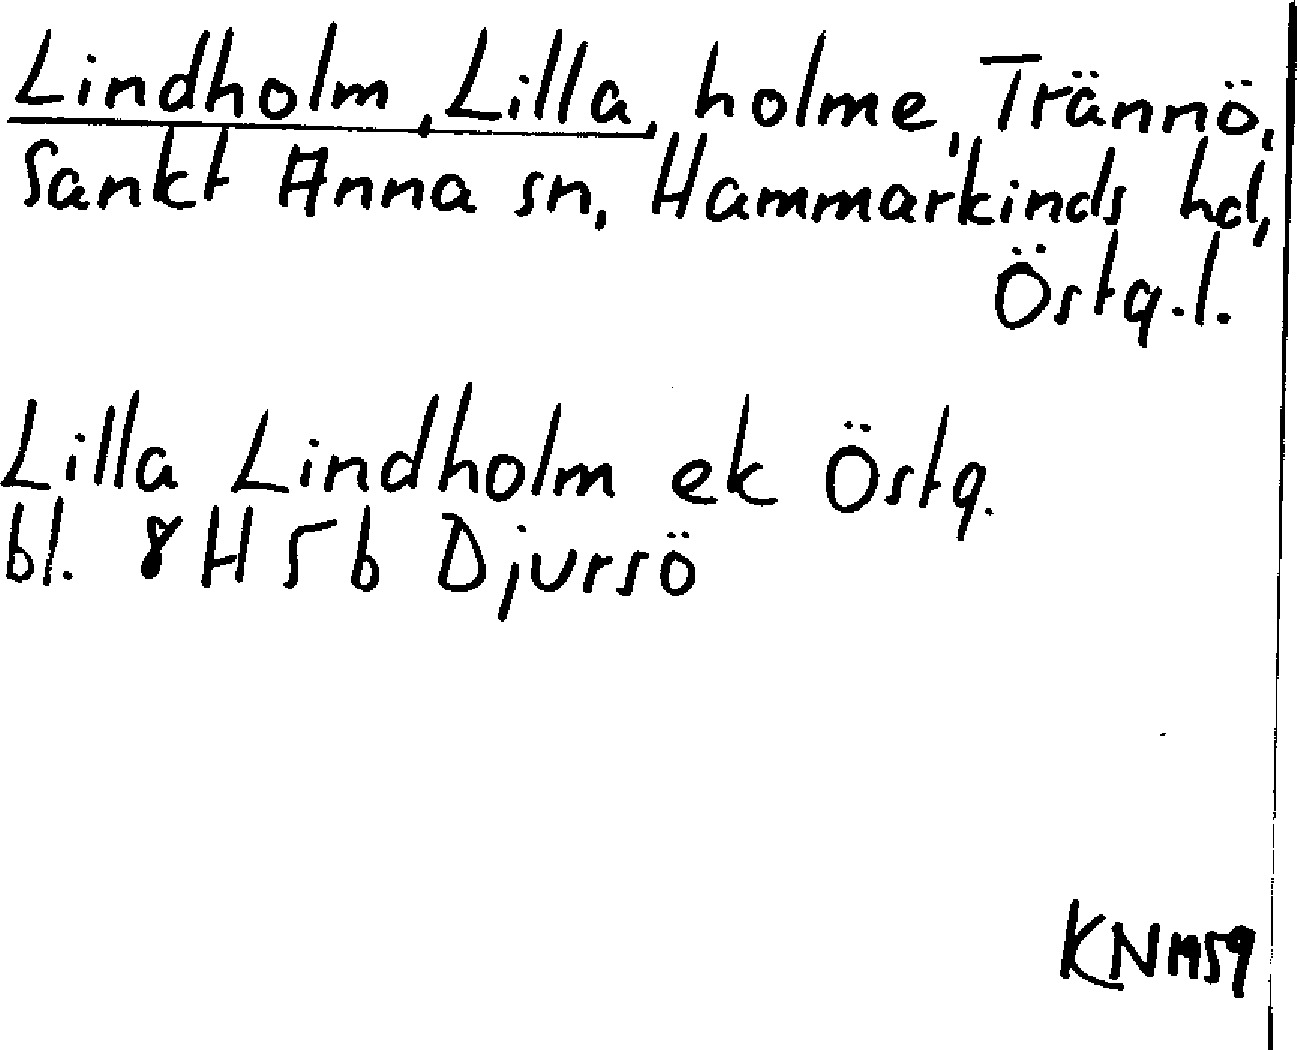 Lindholm, Lilla, holme, Trännö,
Sankt Anna sn, Hammarkinds hd,
Östg.l.
Lilla Lindholm ek Östg.
bl. 8H5b Djursö